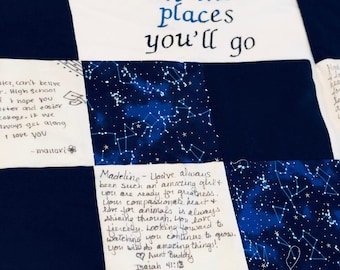 places
you'll go
can't believe
High School
I hope you
and easter
college. if we
always get along
I love you
- mallori
Madeline - You've always
been such an amazing girl &
you are ready for greatness.
Your compassionate heart &
love for animals is always
shining through. You love
fiercely. Looking forward to
watching you continue to grow.
You will do amazing things!
♡ Aunt Buddy
Isaiah 41:13